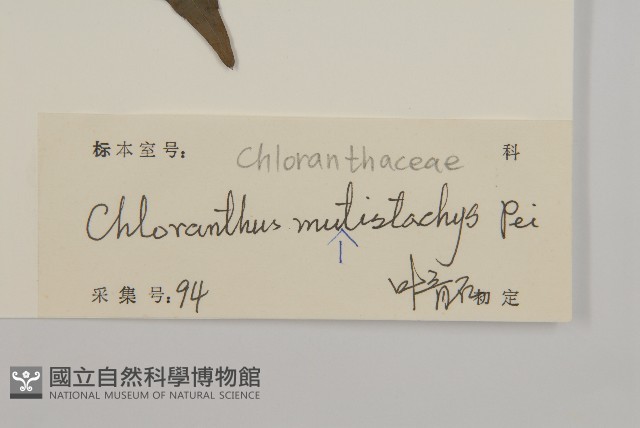 标本室号: Chloranthaceae 科
Chloranthus mutistachys Pei
采集号: 94 初定
國立自然科學博物館
NATIONAL MUSEUM OF NATURAL SCIENCE